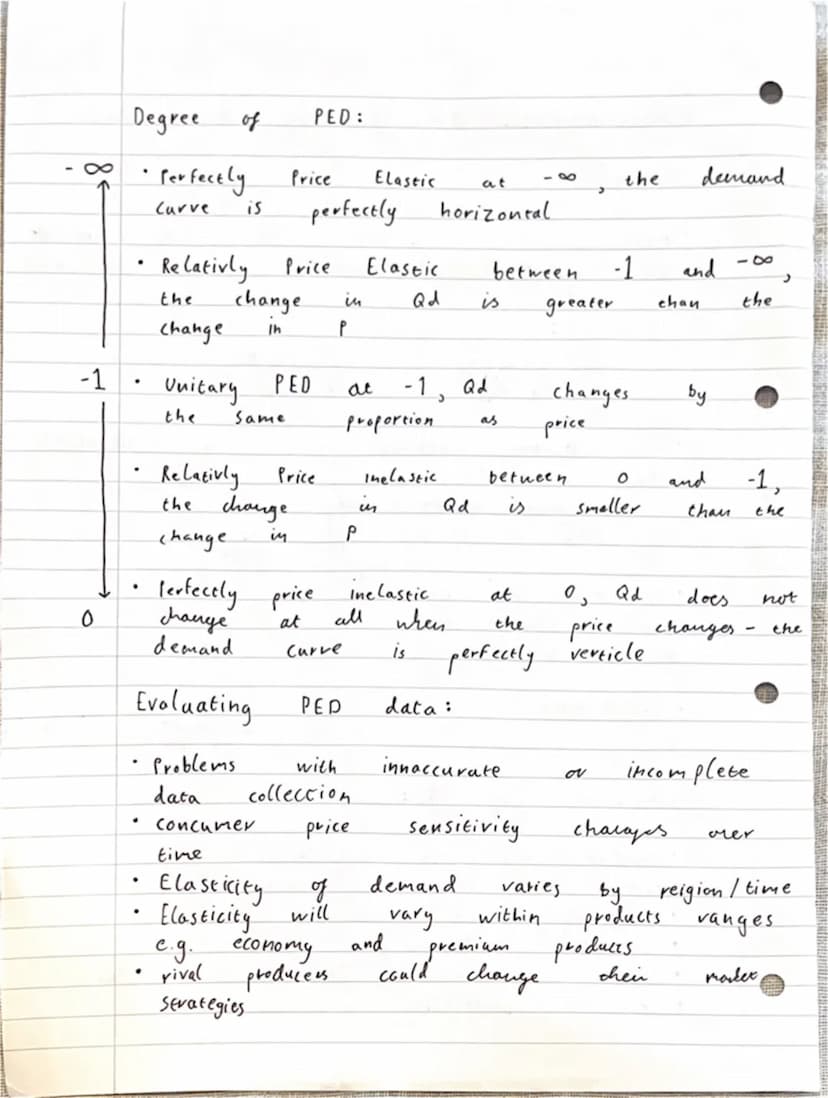 Degree of PED:
- ∞
• Perfectly Price Elastic at -∞, the demand
curve is perfectly horizontal
• Relativly Price Elastic between -1 and -∞,
the change in Qd is greater than the
change in P
-1
• Unitary PED at -1, Qd changes by
the same proportion as price
• Relativly Price inelastic between 0 and -1,
the change in Qd is smaller than the
change in P
• Perfectly price inelastic at 0, Qd does not
0
change at all when the price changes - the
demand curve is perfectly verticle
Evaluating PED data:
• Problems with innaccurate or incomplete
data collection
• concumer price sensitivity changes over
time
• Elasticity of demand varies by reigion/time
• Elasticity will vary within products ranges
e.g. economy and premium products
• rival producers could change their market
strategies